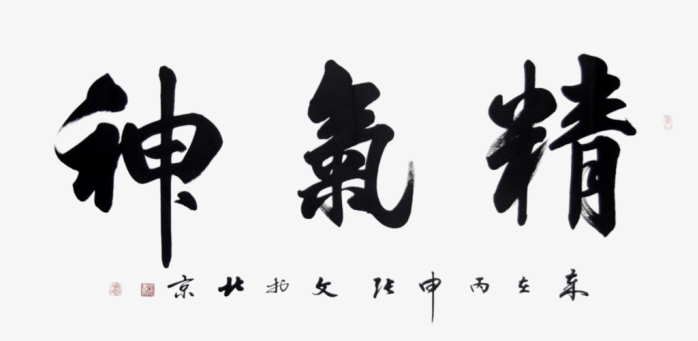 精氣神
岁在丙申张文於北京